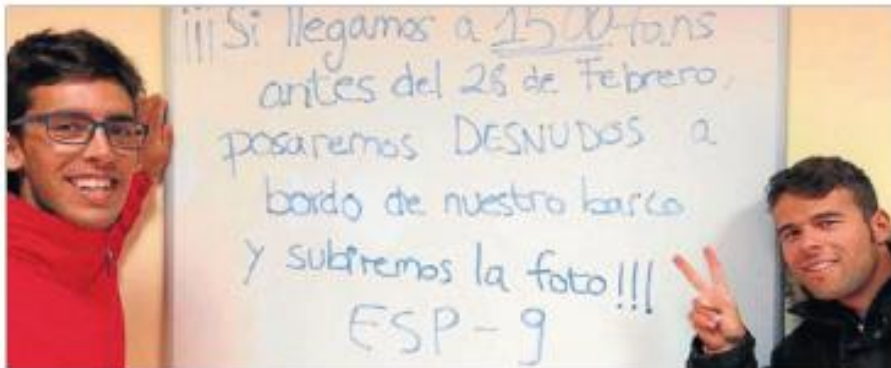 ¡¡¡Si llegamos a 1500 fans
antes del 28 de Febrero,
posaremos DESNUDOS a
bordo de nuestro barco
y subiremos la foto!!!
ESP-9